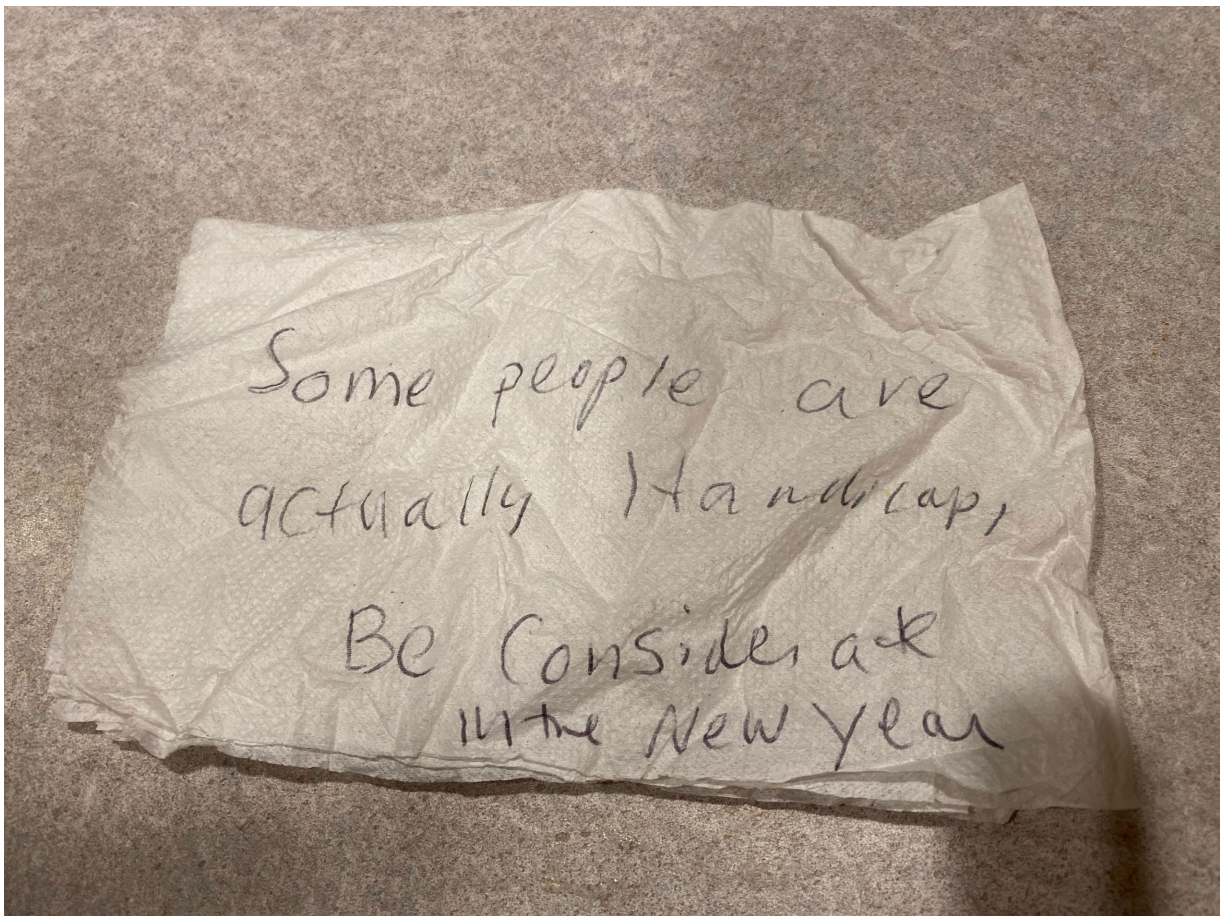 Some people are
actually Handicap,
Be Considerate
in the New Year